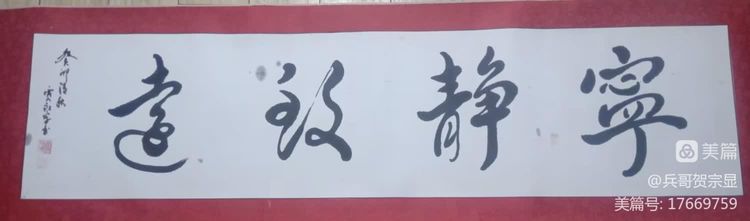 寧静致遠
癸卯清秋
美篇
@兵哥贺宗显
美篇号: 17669759